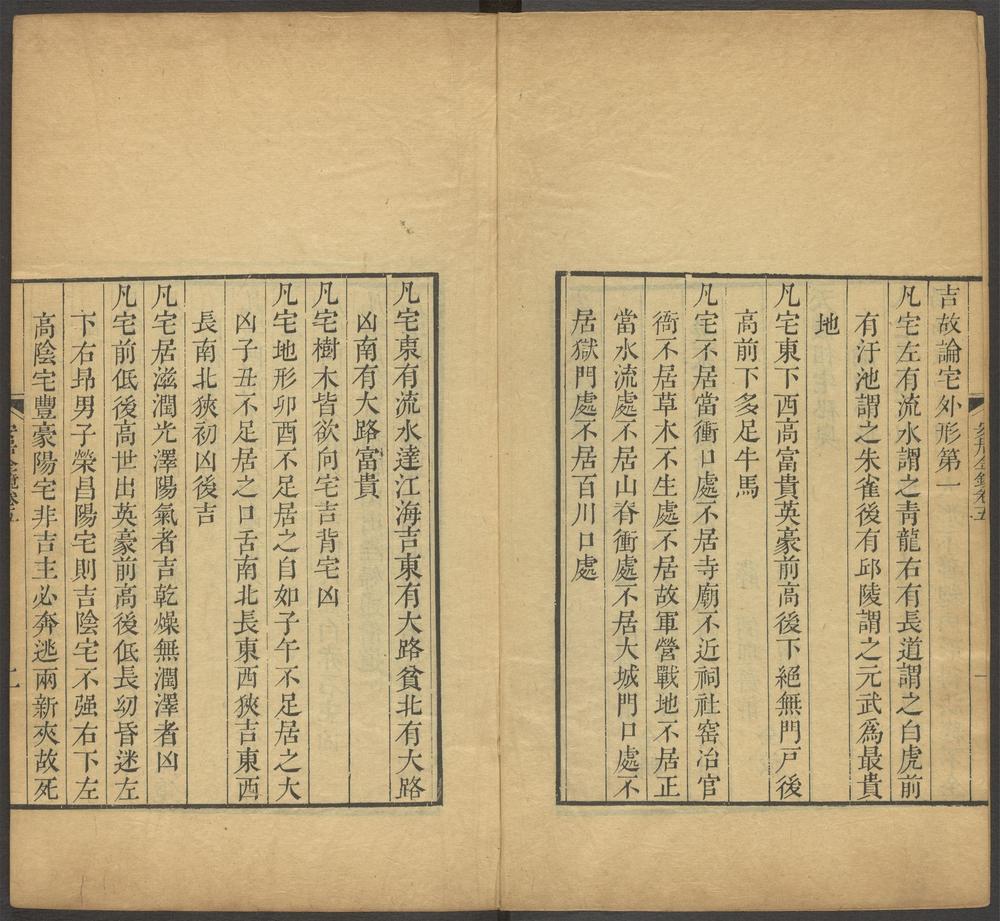 吉故論宅外形第一
凡宅左有流水謂之靑龍右有長道謂之白虎前
有汙池謂之朱雀後有邱陵謂之元武爲最貴
地
凡宅東下西高富貴英豪前高後下絕無門戸後
高前下多足牛馬
凡宅不居當衝口處不居寺廟不近祠社窑冶官
衙不居草木不生處不居故軍營戰地不居正
當水流處不居山脊衝處不居大城門口處不
居獄門處不居百川口處
凡宅東有流水達江海吉東有大路貧北有大路
凶南有大路富貴
凡宅樹木皆欲向宅吉背宅凶
凡宅地形卯酉不足居之自如子午不足居之大
凶子丑不足居之口舌南北長東西狹吉東西
長南北狹初凶後吉
凡宅居滋潤光澤陽氣者吉乾燥無潤澤者凶
凡宅前低後高世出英豪前高後低長幼昏迷左
下右昂男子榮昌陽宅則吉陰宅不强右下左
高陰宅豐豪陽宅非吉主必奔逃兩新夾故死